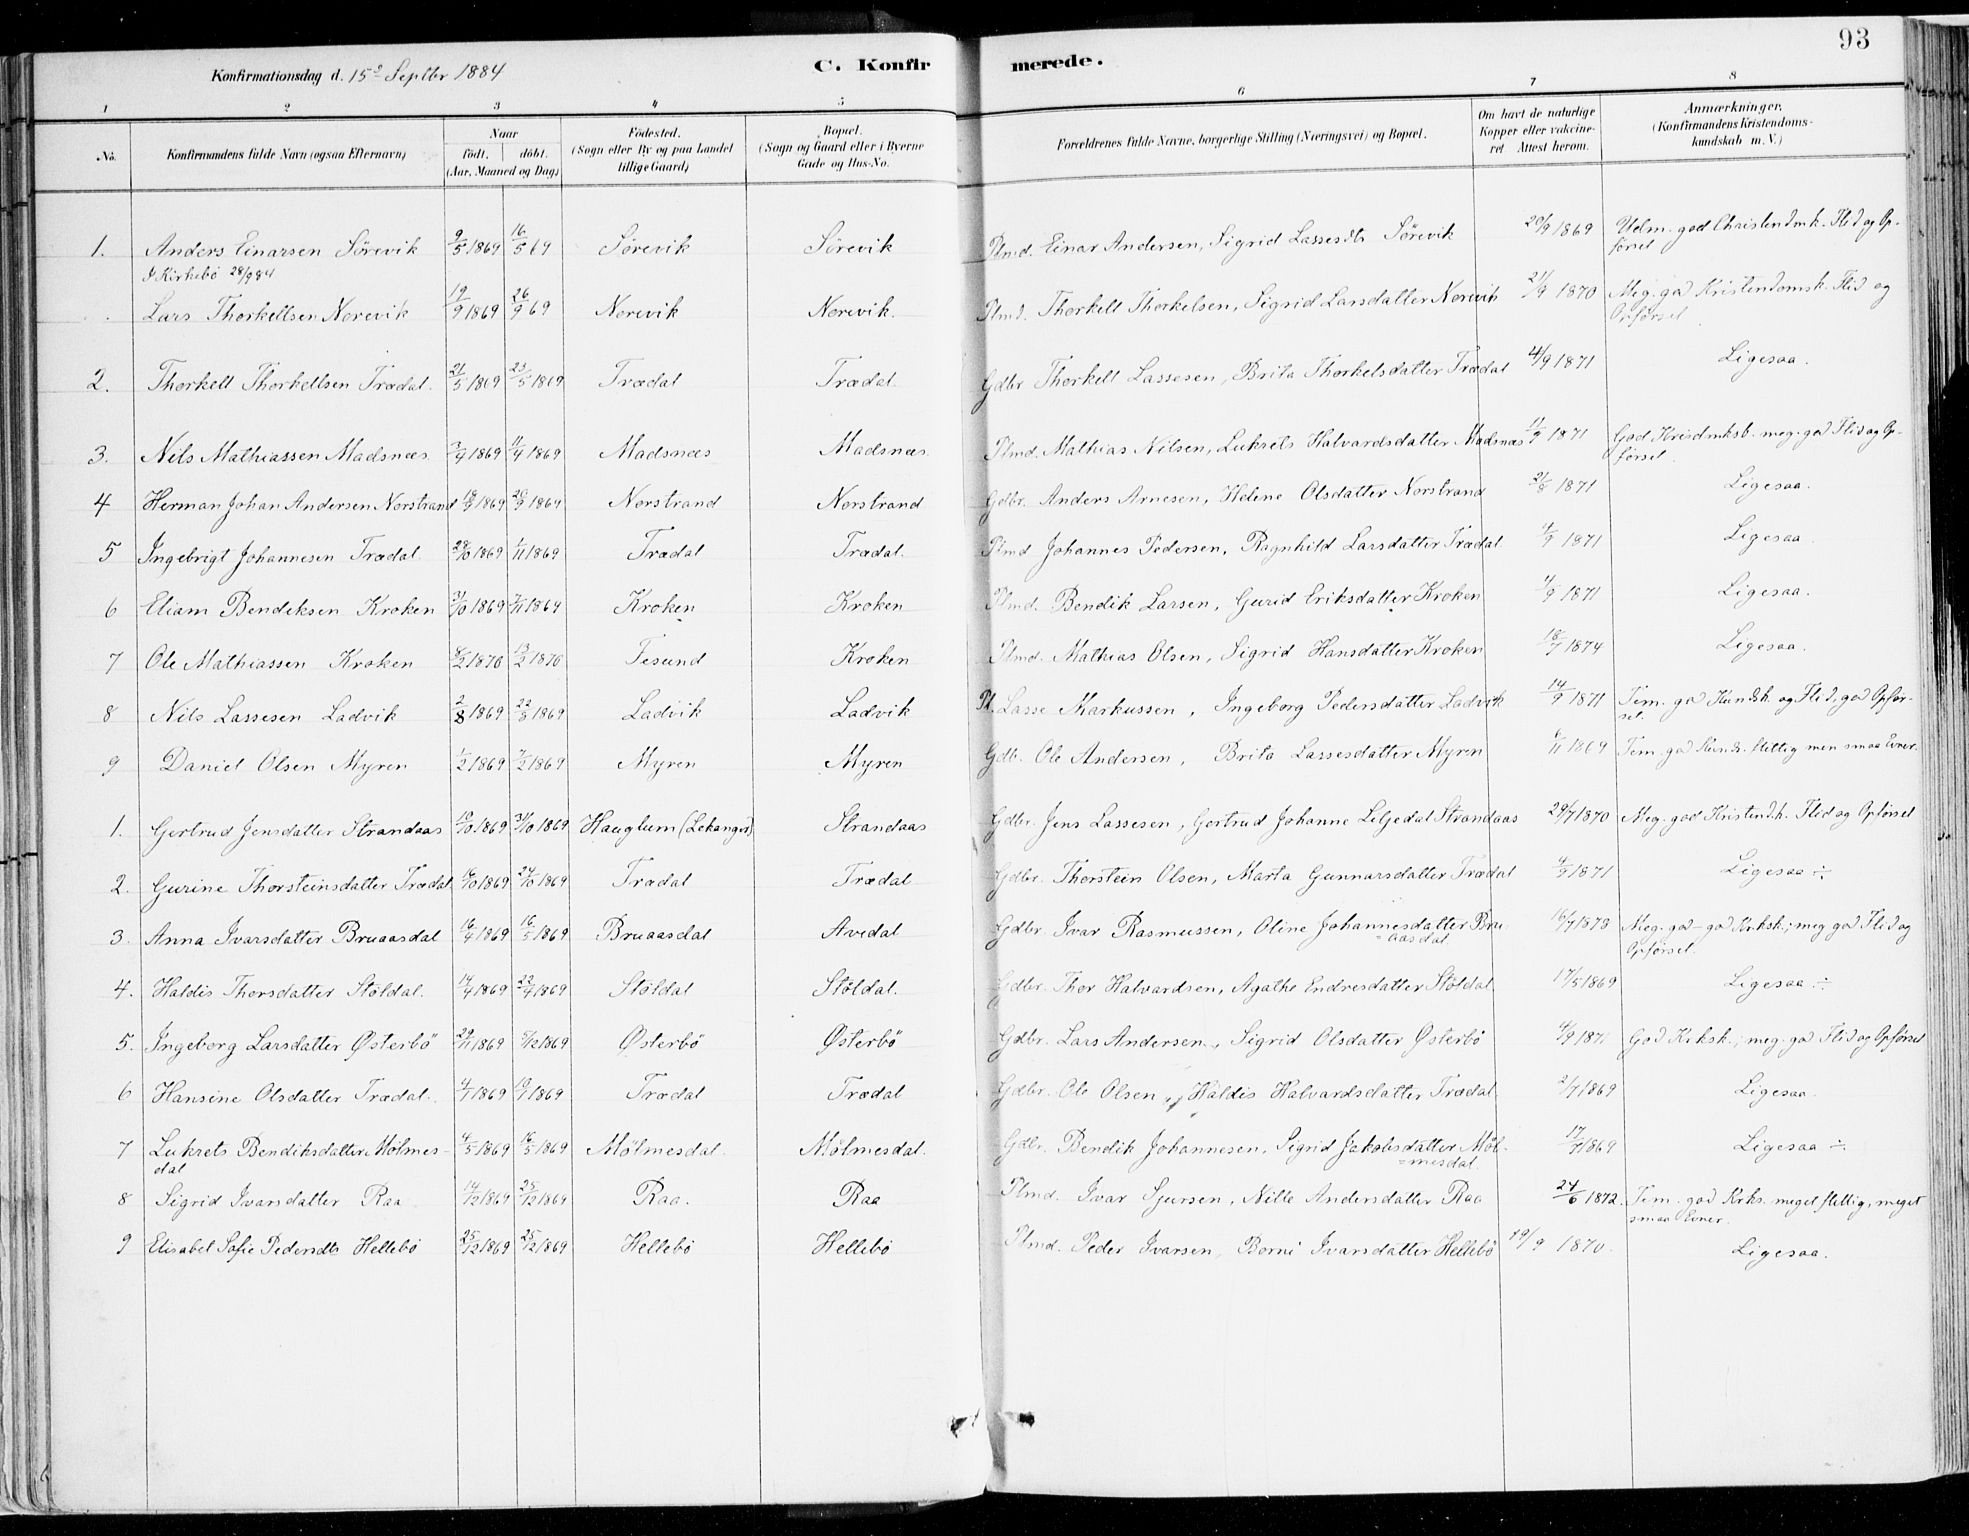 93
Konfirmationsdag d. 15de Septbr 1884
C. Konfirmerede.
1 2 3 4 5 6 7 8
No. Konfirmandens fulde Navn (ogsaa Efternavn) Naar født. døbt. (Aar, Maaned og Dag) Fødested. (Sogn eller By og paa Landet tillige Gaard) Bopæl. (Sogn og Gaard eller i Byerne Gade og Hus-No. Forældrenes fulde Navne, borgerlige Stilling (Næringsvei) og Bopæl. Om havt de naturlige Kopper eller vakcineret Attest herom. Anmærkninger, (Konfirmandens Kristendomskundskab m. V.)
1. Anders Einarsen Sörevik 9/5 1869 16/5 69 Sörevik Sörevik Plmd. Einar Andersen, Sigrid Lassesdtr Sörevik 20/9 1869 Udm. god Christendmk. Flid og Opförsel
I Kirkebö 28/9 84
Lars Thorkellsen Norevik 19/9 1869 26/9 69 Norevik Norevik. Plmd. Thorkell Thorkelsen, Sigrid Larsdatter Norevik 21/9 1870 Meg. god Kristendomsk. Flid og Opförsel
2. Thorkell Thorkellsen Trædal. 21/5 1869 23/5 1869 Trædal Trædal Gdbr Thorkell Lassesen, Brita Thorkelsdatter Trædal 4/9 1871 Ligesaa.
3. Nils Mathiassen Madsnæs 3/4 1869 11/4 1869 Madsnæs Madsnæs Plmd. Mathias Nilsen, Lukrets Halvardsdatter Madsnæs 11/9 1871 God Krisdmksb. meg. god Flid og Opförsel.
4 Herman Johan Andersen Norstrand 18/8 1869 20/9 1869 Norstrand Norstrand Gdbr. Anders Arnesen, Helene Olsdatter Norstrand 21/8 1871 Ligesaa.
5 Ingebrigt Johannesen Trædal 28/10 1869 1/11 1869 Trædal Trædal. Plmd Johannes Pedersen, Ragnhild Larsdatter Trædal 4/9 1871 Ligesaa.
6 Eliam Bendiksen Kroken 31/10 1869 7/11 1869 Kroken Kroken Plmd. Bendik Larsen, Gurid Eriksdatter Kroken 4/9 1871 Ligesaa.
7 Ole Mathiassen Kroken 6/2 1870 13/2 1870 Tesund Kroken Plmd. Mathias Olsen, Sigrid Hansdatter Kroken 18/7 1874 Ligesaa.
8 Nils Lassesen Ladvik 2/8 1869 22/8 1869 Ladvik Ladvik Pl. Lasse Markussen, Ingeborg Pedersdatter Ladvik 14/9 1871 Tem. god Kundsk. og Flid, god Opförsel.
9 Daniel Olsen Myren 1/2 1869 7/2 1869 Myren Myren Gdb. Ole Andersen, Brita Lassesdatter Myren 6/11 1869 Tem. god Kunds. flittig men smaa Evner.
1. Gertrud Jensdatter Strandaas 10/10 1869 31/10 1869 Hauglum (Lekanger) Strandaas Gdbr. Jens Lassesen, Gertrud Johanne Liljedal Strandaas 29/7 1870 Meg. god Kristendk. Flid og Opförsel
2. Gurine Thorsteinsdatter Trædal 16/10 1869 24/10 1869 Trædal Trædal Gdbr. Thorstein Olsen, Marta Gunnarsdatter Trædal 4/9 1871 Ligesaa ÷
3. Anna Ivarsdatter Bruaasdal 16/4 1869 16/5 1869 Bruaasdal Avedal Gdbr Ivar Rasmussen, Oline Johannesdatter Bruaasdal 16/7 1878 Meg. god - god Krksk; meg god Flid og Opförsel.
4. Haldis Thorsdatter Stöldal. 14/4 1869 22/4 1869 Stöldal Stöldal. Gdbr. Thor Halvardsen, Agathe Endresdatter Stöldal 17/5 1869 Ligesaa ÷
5. Ingeborg Larsdatter Østerbö 29/11 1869 5/12 1869 Østerbö Østerbö Gdbr. Lars Andersen, Sigrid Olsdatter Østerbö 4/9 1871 God Krksk.; meg. god Flid og Opförsel
6 Hansine Olsdatter Trædal. 4/7 1869 10/7 1869 Trædal Trædal Gdbr. Ole Olsen, Haldis Halvardsdatter Trædal 2/7 1869 Ligesaa.
7 Lukrets Bendiksdatter Mölmesdal 4/5 1869 16/5 1869 Mölmesdal. Mölmesdal. Gdbr. Bendik Johannesen, Sigrid Jakobsdatter Mölmesdal. 17/9 1869 Ligesaa ÷
8 Sigrid Ivarsdatter Raa 14/12 1869 25/12 1869 Raa. Raa Plmd. Ivar Sjursen, Nille Andersdatter Raa 24/6 1872. Tem. god Krks. meget flittig, meget smaa Evner.
9 Elisabet Sofie Pedersdtr Hellebö 25/12 1869 25/12 1869 Hellebö Hellebö Plmd. Peder Ivarsen, Borni Ivarsdatter Hellebö 19/9 1870. Ligesaa.